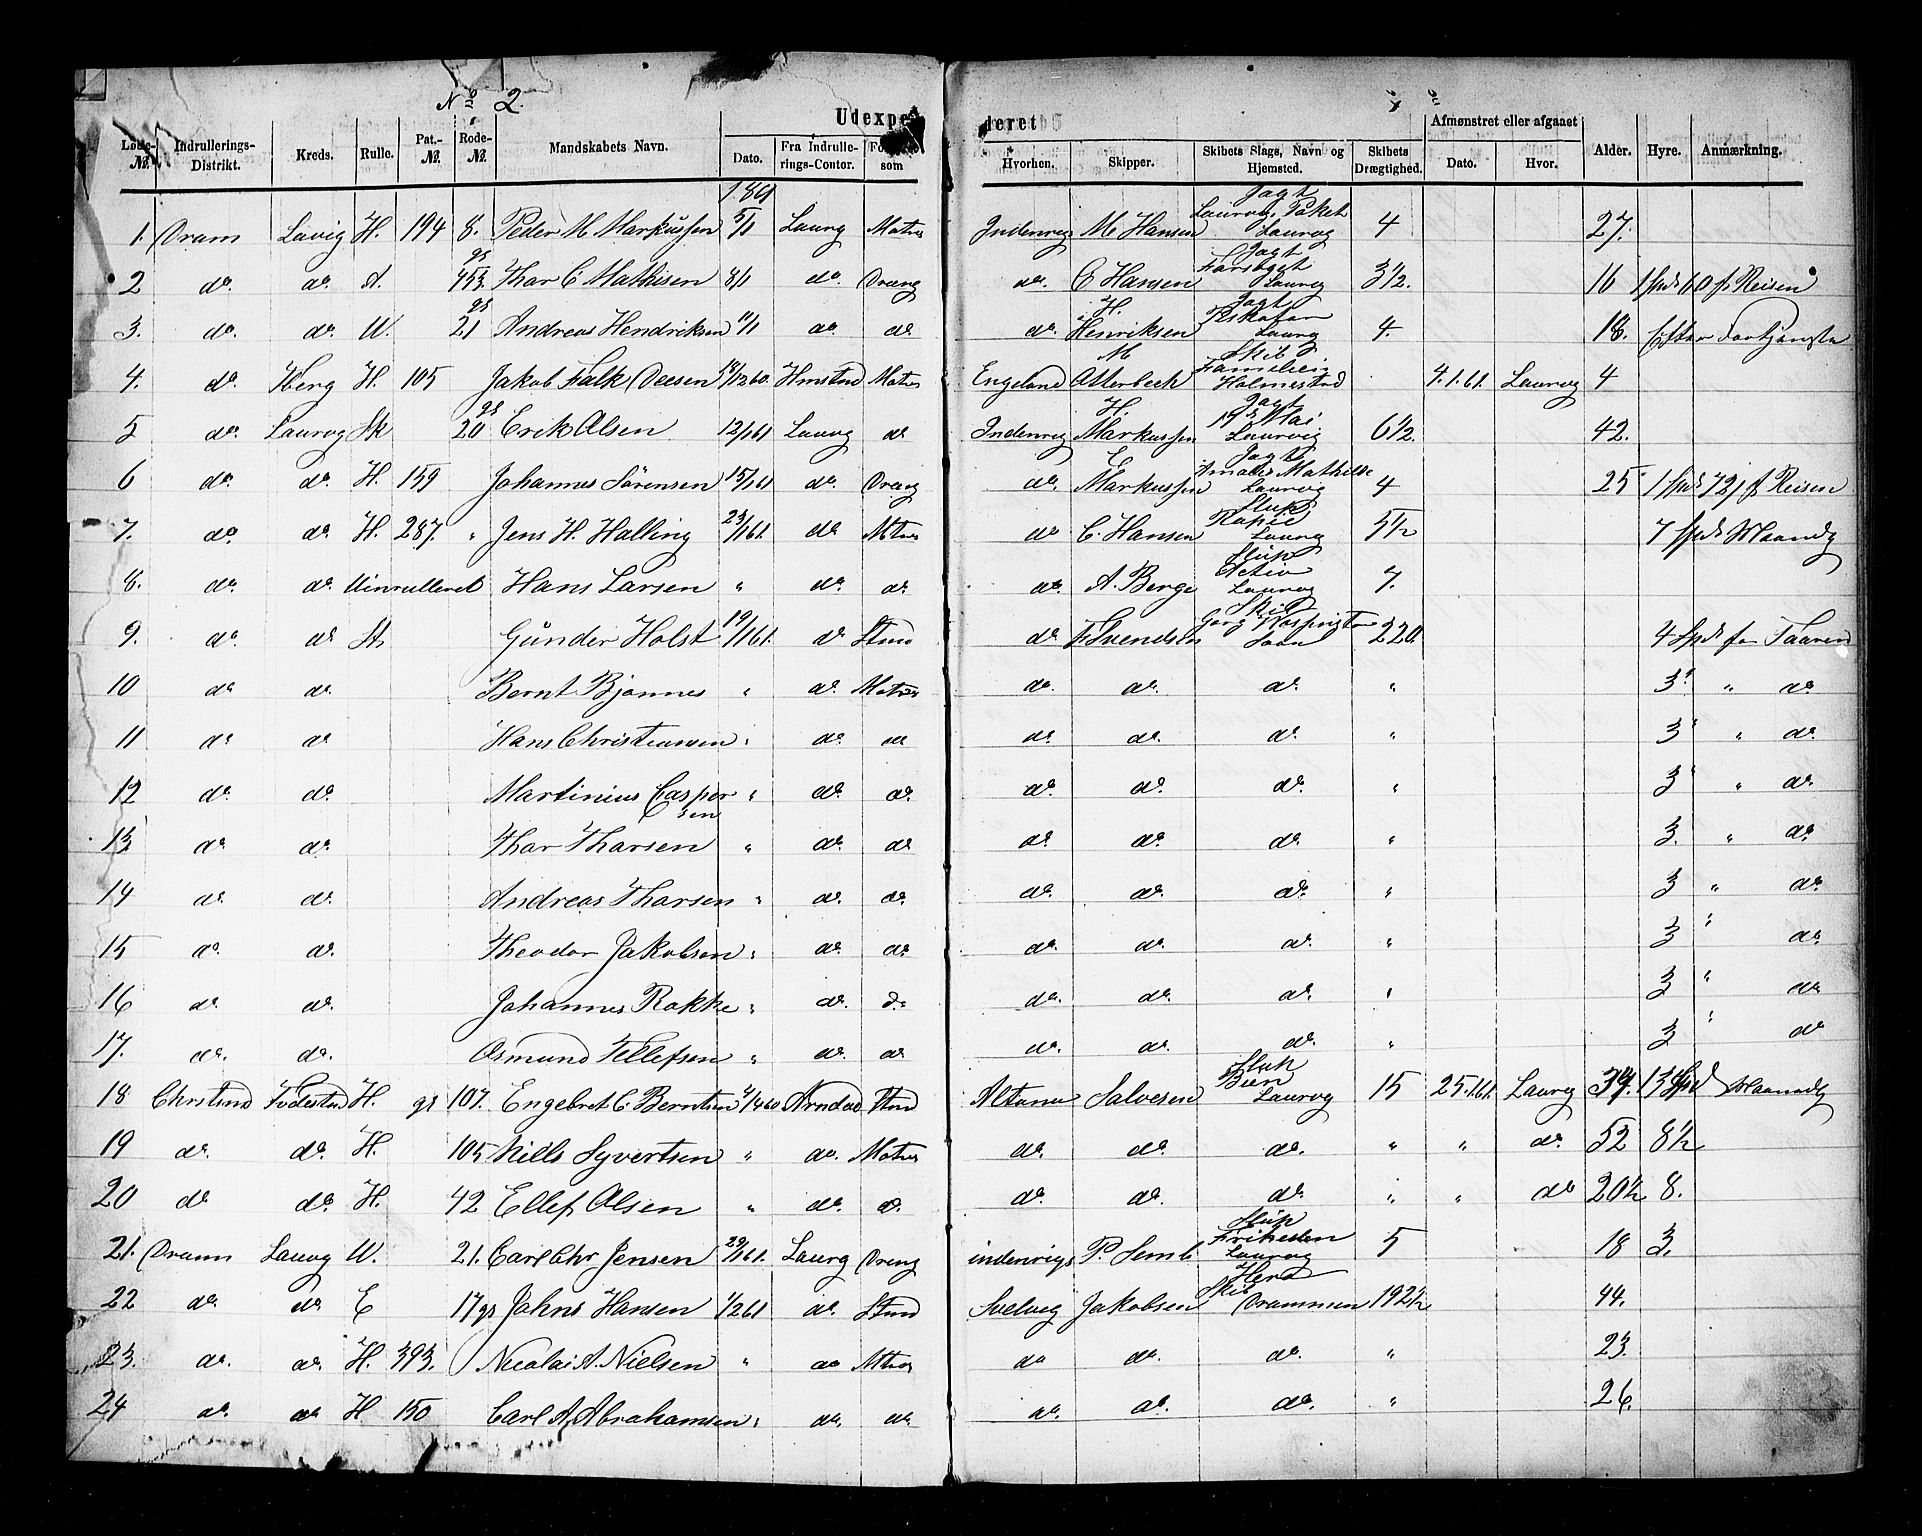 No 2.
Udexpederet
Løbe-№. Indrullerings-Distrikt. Kreds. Rulle. Pat.-№. Rode-№. Mandskabets Navn. Dato. Fra Indrullerings-Contor. som Hvorhen. Skipper. Skibets Slags, Navn og Hjemsted. Skibets Drægtighed. Afmønstret eller afgaaet Dato. Hvor. Alder. Hyre. Anmærkning.
1861
1. Dram Lavig H. 194 8. Peder M Markussen 5/1 Laurg Matros Indenrigs M Hansen Jagt Laurvigs Paket Laurvg 4 27.
2 do. do. A. 953 Thor C Mathisen 8/1 do. Dreng do. C Hansen Jagt Forsøget Laurvg 3 1/2. 16 1 spd 60 p Reisen
3. do do. U. 21 Andreas Hendriksen 11/1 do. do do. H. Henriksen Jagt Laurvg 4. 18. Efter Fortjeneste
4. do Hberg H. 105 Jakob Falk Deesen 12 60. Hmstrd Matros Engeland M Atterbeck Skib Familien Halmestad 4.1.61. Laurvg 4
5 do. Laurvg Sk 20 Erik Olsen 12/1 61 Laurvg do Indenrig H. Markussen Jagt 17de Mai Laurvig 6 1/2. 42.
6 do. do. H. 159 Johannes Sørensen 15/1 61 do. Dreng do. E Markussen Jagt Amalie Mathilde Laurvig 4 25 1 spd 72 p Reisen
7. do. do. H. 287. " Jens H. Halling 23/1 61. do Mtros do C. Hansen Slup Laurvg 5 1/2 7 spd Maandg
8. do. do. Uinrulleret Hans Larsen " do. do. do. A. Berge Slup Activ Laurvg 7.
9. do do St Gunder Holst 19/1 61. do Stmd do Svendsen Skib Georg Washington 220. 4 Spd for Touren
10 do do. Bernt Bjønnes " do. Matros do. do. do. " 3 " do.
11 do do Hans Christiansen " do. do do. do. do. " 3 " do.
12 do. do. Martinius Casper sen " do. do. do. do. do. " 3 " do.
13 do do. Thor Thorsen " do. do do. do. do. " 3. " do.
14 do. do. Andreas Thorsen " do. do. do. do. do. " 3 " do.
15 do. do. Theodor Jakobsen " do. do. do. do. do. " 3 " do.
16 do. do. Johannes Rakke " do. do do. do. do. " 3 " do
17. do. do. Osmund Tellefsen " do. do do. do. do. " 3 " do
18 Christsnd Fodestad H. gs 107. Engebret C. Berntsen 4 60 Arndal Stmd Altona Salvesen Slup Bien Laurvg 15 25.1.61. Laurvg 39. 13 Spd Maandg
19 do. do. H. 105 Niels Syvertsen " do. Matros do. do. do. " " do. 52 8 1/2
20 do do. H. 42 Ellef Olsen " do. do. do. do. do. " " do 20 1/2 8.
21. Dram Laurvg U. 21. Carl Chr Jensen 29/1 61. Laurg Dreng indenrigs P. Semb Slup Friheden Laurvg 5 18 3.
22 do. do E 17 gs Johns Hansen 1/2 61 do. Stmd Svelvig Jakobsen Skib Hera Drammen 192 1/2 44.
23. do. do. H. 393. Nicolai A. Nielsen " do Mtros do do. do. " 23.
24 do. do H 150 Carl A. Abrahamsen " do. do. do. do. do. " 26.